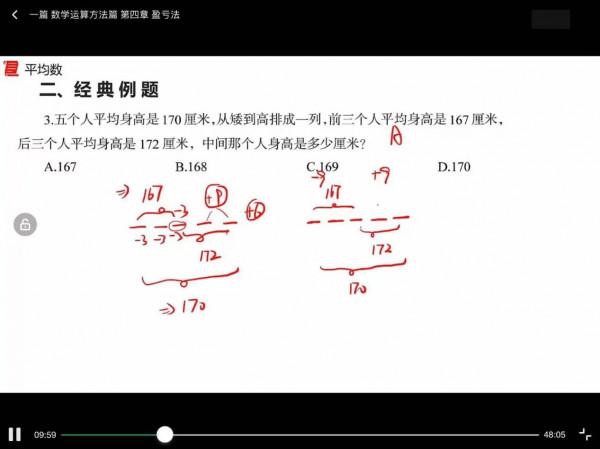 一篇 数学运算方法篇 第四章 盈亏法
平均数
二、经典例题
3.五个人平均身高是 170 厘米，从矮到高排成一列，前三个人平均身高是 167 厘米，
后三个人平均身高是 172 厘米，中间那个人身高是多少厘米？ A
A.167 B.168 C.169 D.170
-9 +9
167 +9 167
-3 +6
-3 -3 -3
172 172
170 170
09:59 48:05